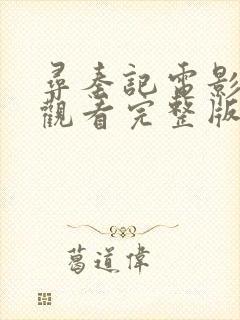 尋秦記電影
觀看完整版
葛道偉